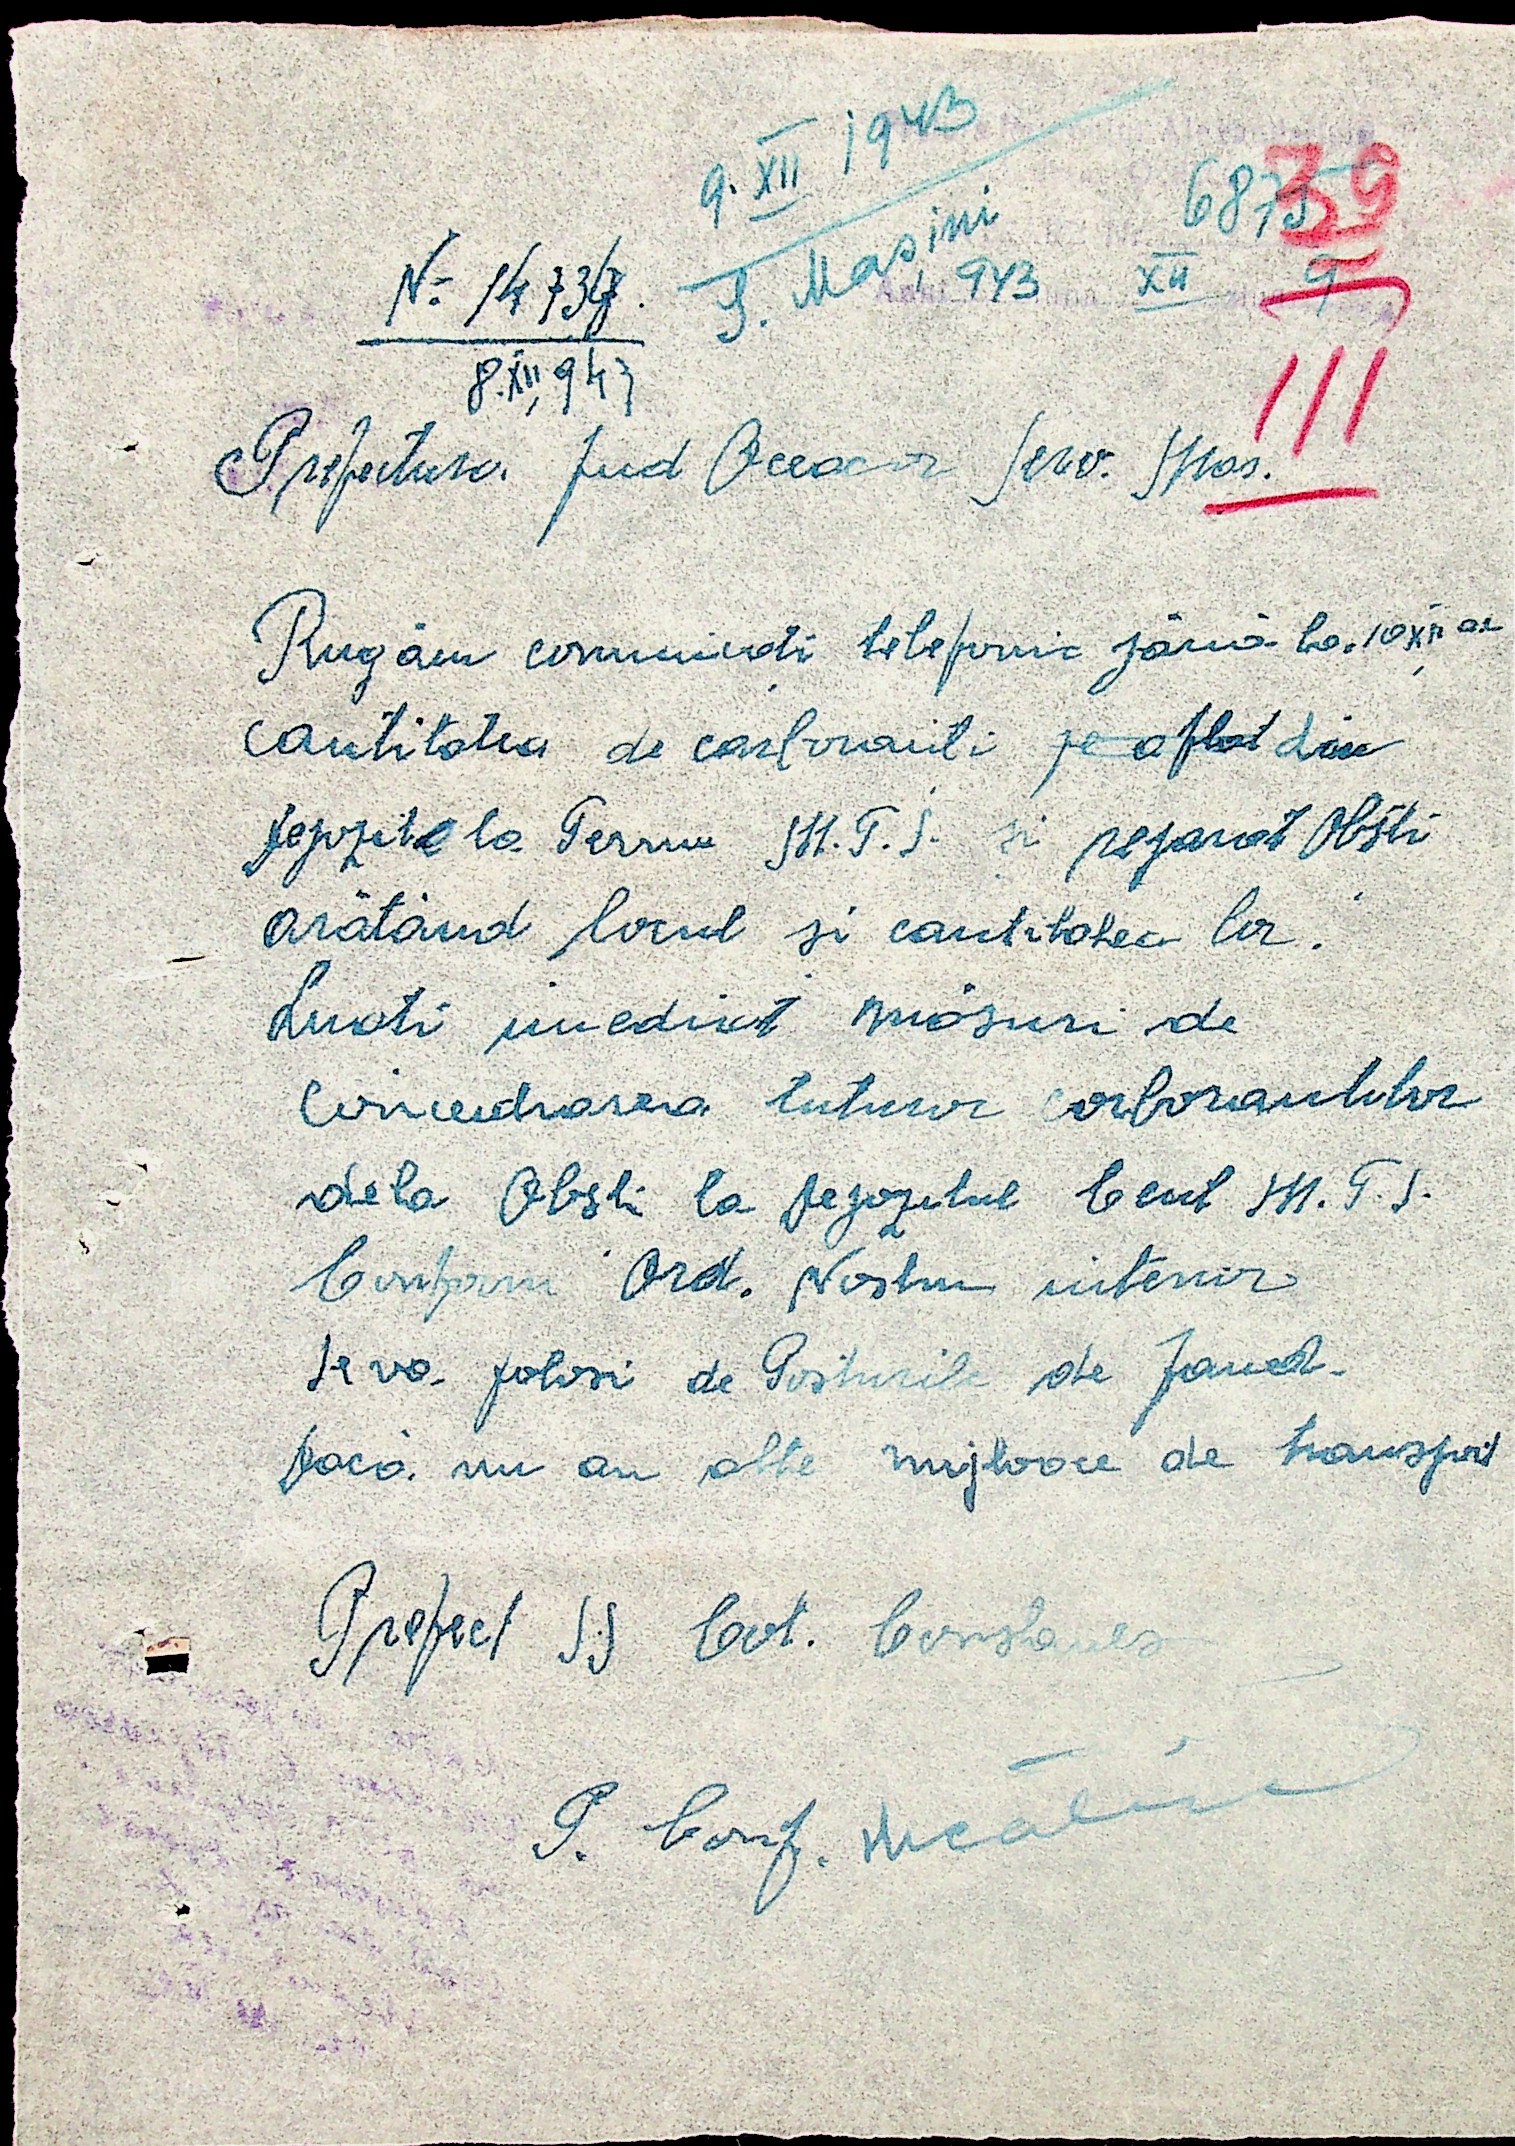 9. XII 1943
S. Mașini
6875
39
943 XII 9
III
Nº 14734.
8.XII,943
Prefectura Jud Oceacov Serv. Mas.
Rugăm comunicati telefonic până la 10 XII ac
cantitatea de carburanti aflat din
depozitele la Ferme M.T.S. și separat Obști
arătând locul și cantitatea lor.
Luati imediat măsuri de
Concentrarea tuturor carburantilor
dela Obști la depozitul Cent M.T.S.
Conform Ord. Nostru interior
se va folosi de Posturile de Jand.
dacă nu au alte mijloace de transport
Prefect SS Col.
P. Conf.